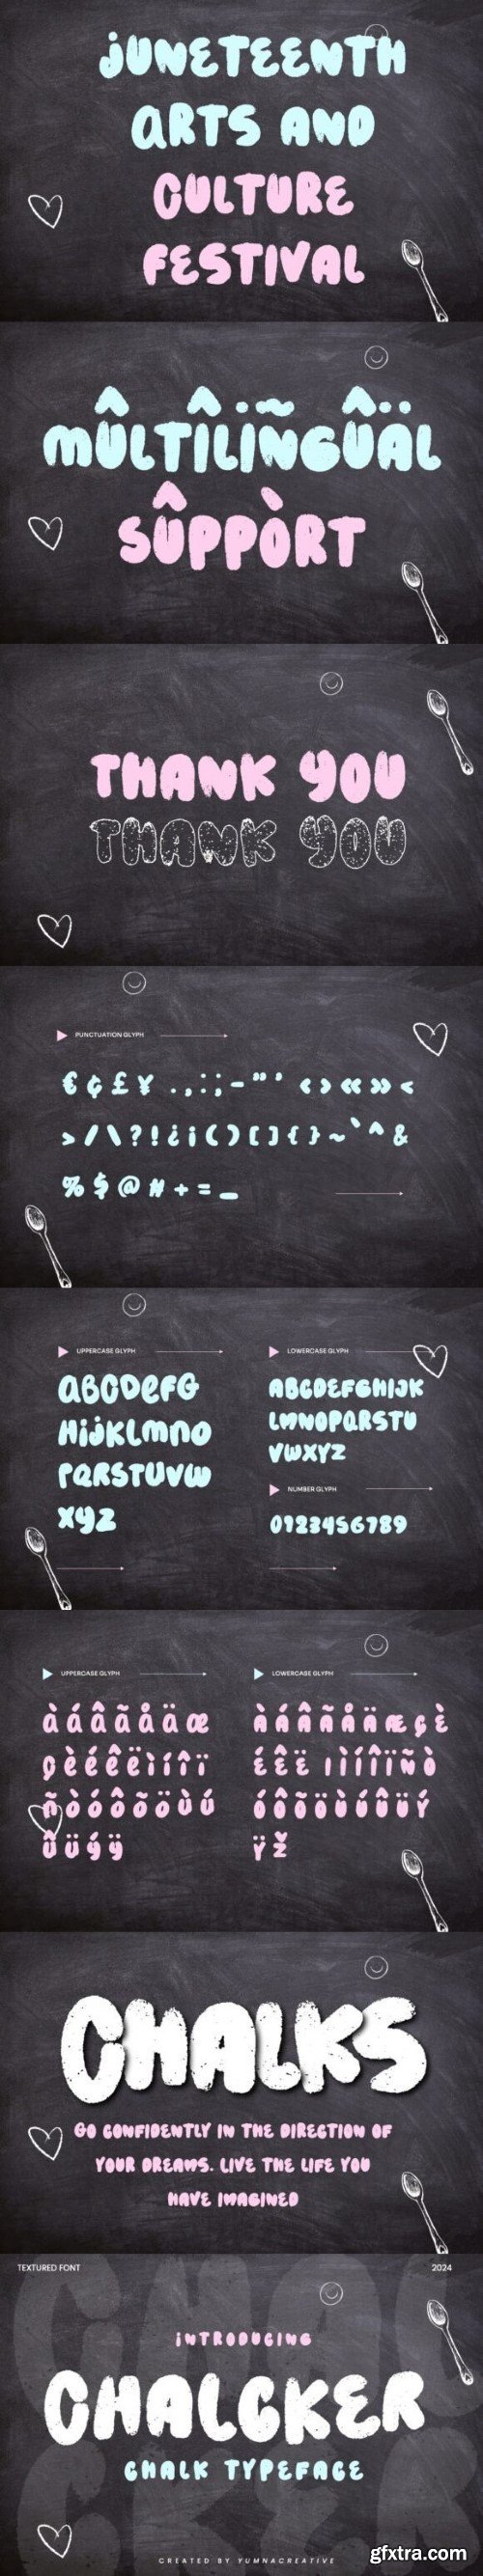 JUNETEENTH
ARTS AND
CULTURE
FESTIVAL
MÛLTÎLİÑGÛÄL
SÛPPÒRT
THANK YOU
THANK YOU
PUNCTUATION GLYPH
€ ¢ £ ¥ . , : ; - " ' ‹ › « » <
> / \ ? ! ¿ ¡ ( ) [ ] { } ~ ` ^ &
% $ @ # + = _
UPPERCASE GLYPH
aBCDeFG
HijKLmno
PQRSTUVW
XYZ
LOWERCASE GLYPH
ABCDEFGHIJK
LMNOPQRSTU
VWXYZ
NUMBER GLYPH
0123456789
UPPERCASE GLYPH
à á â ã å ä æ
ç è é ê ë ì í î ï
ñ ò ó ô õ ö ù ú
û ü ý ÿ
LOWERCASE GLYPH
À Á Â Ã Å Ä Æ Ç È
É Ê Ë I Ì Í Î Ï Ñ Ò
Ó Ô Õ Ö Ù Ú Û Ü Ý
Ÿ Ž
CHALKS
GO CONFIDENTLY IN THE DIRECTION OF
YOUR DREAMS. LIVE THE LIFE YOU
HAVE IMAGINED
TEXTURED FONT
2024
INTRODUCING
CHALCKER
CHALK TYPEFACE
CREATED BY YUMNACREATIVE
gfxtra.com